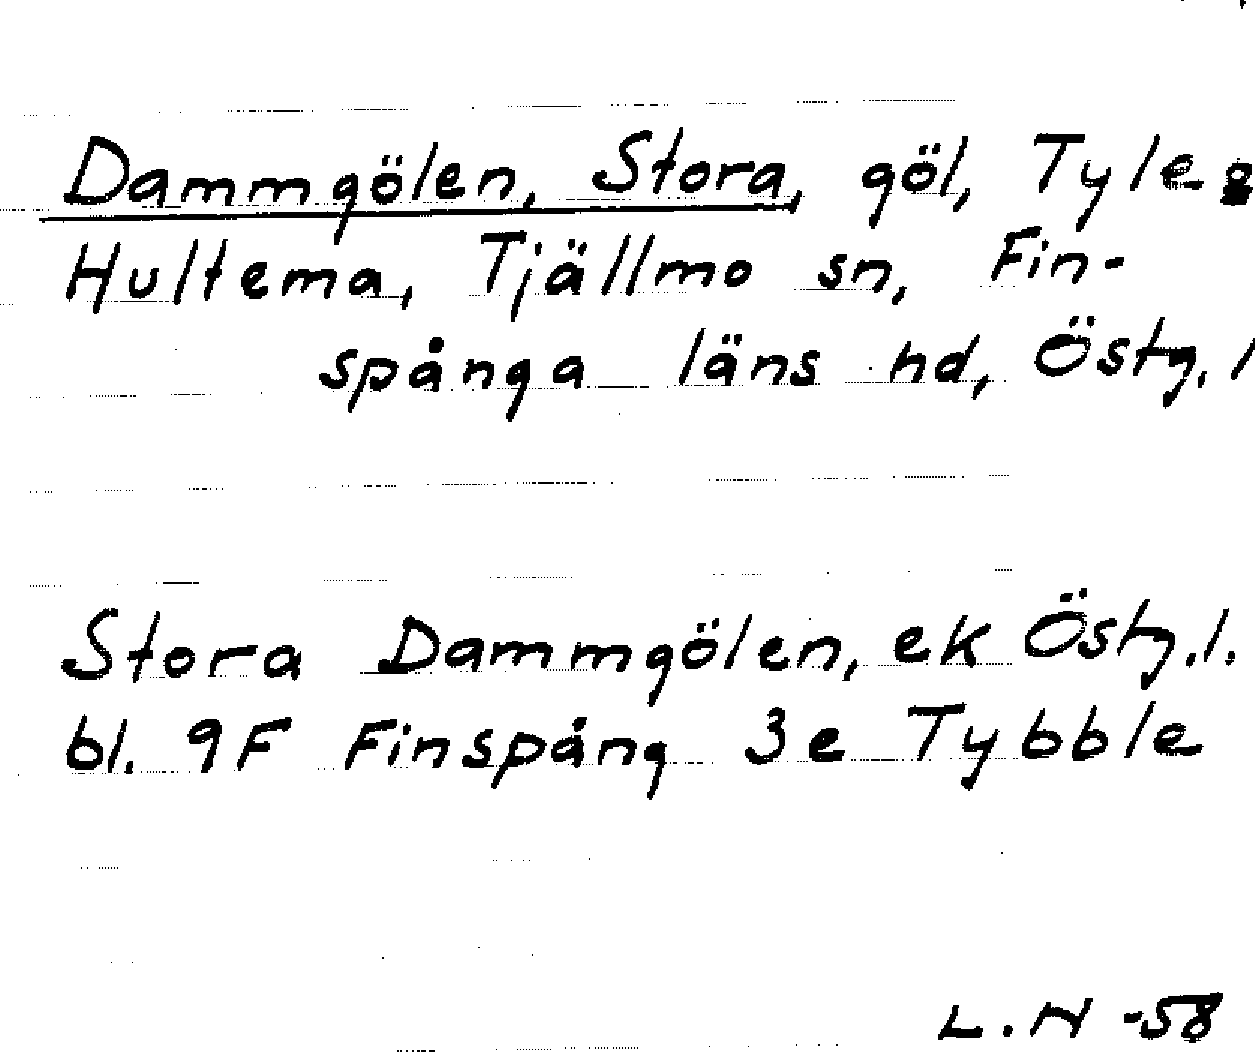 Dammgölen, Stora, göl, Tyle
Hultema, Tjällmo sn, Fin-
spånga läns hd, Östg. l
Stora Dammgölen, ek Östg.l.
bl. 9F Finspång 3e Tybble
L.N -58